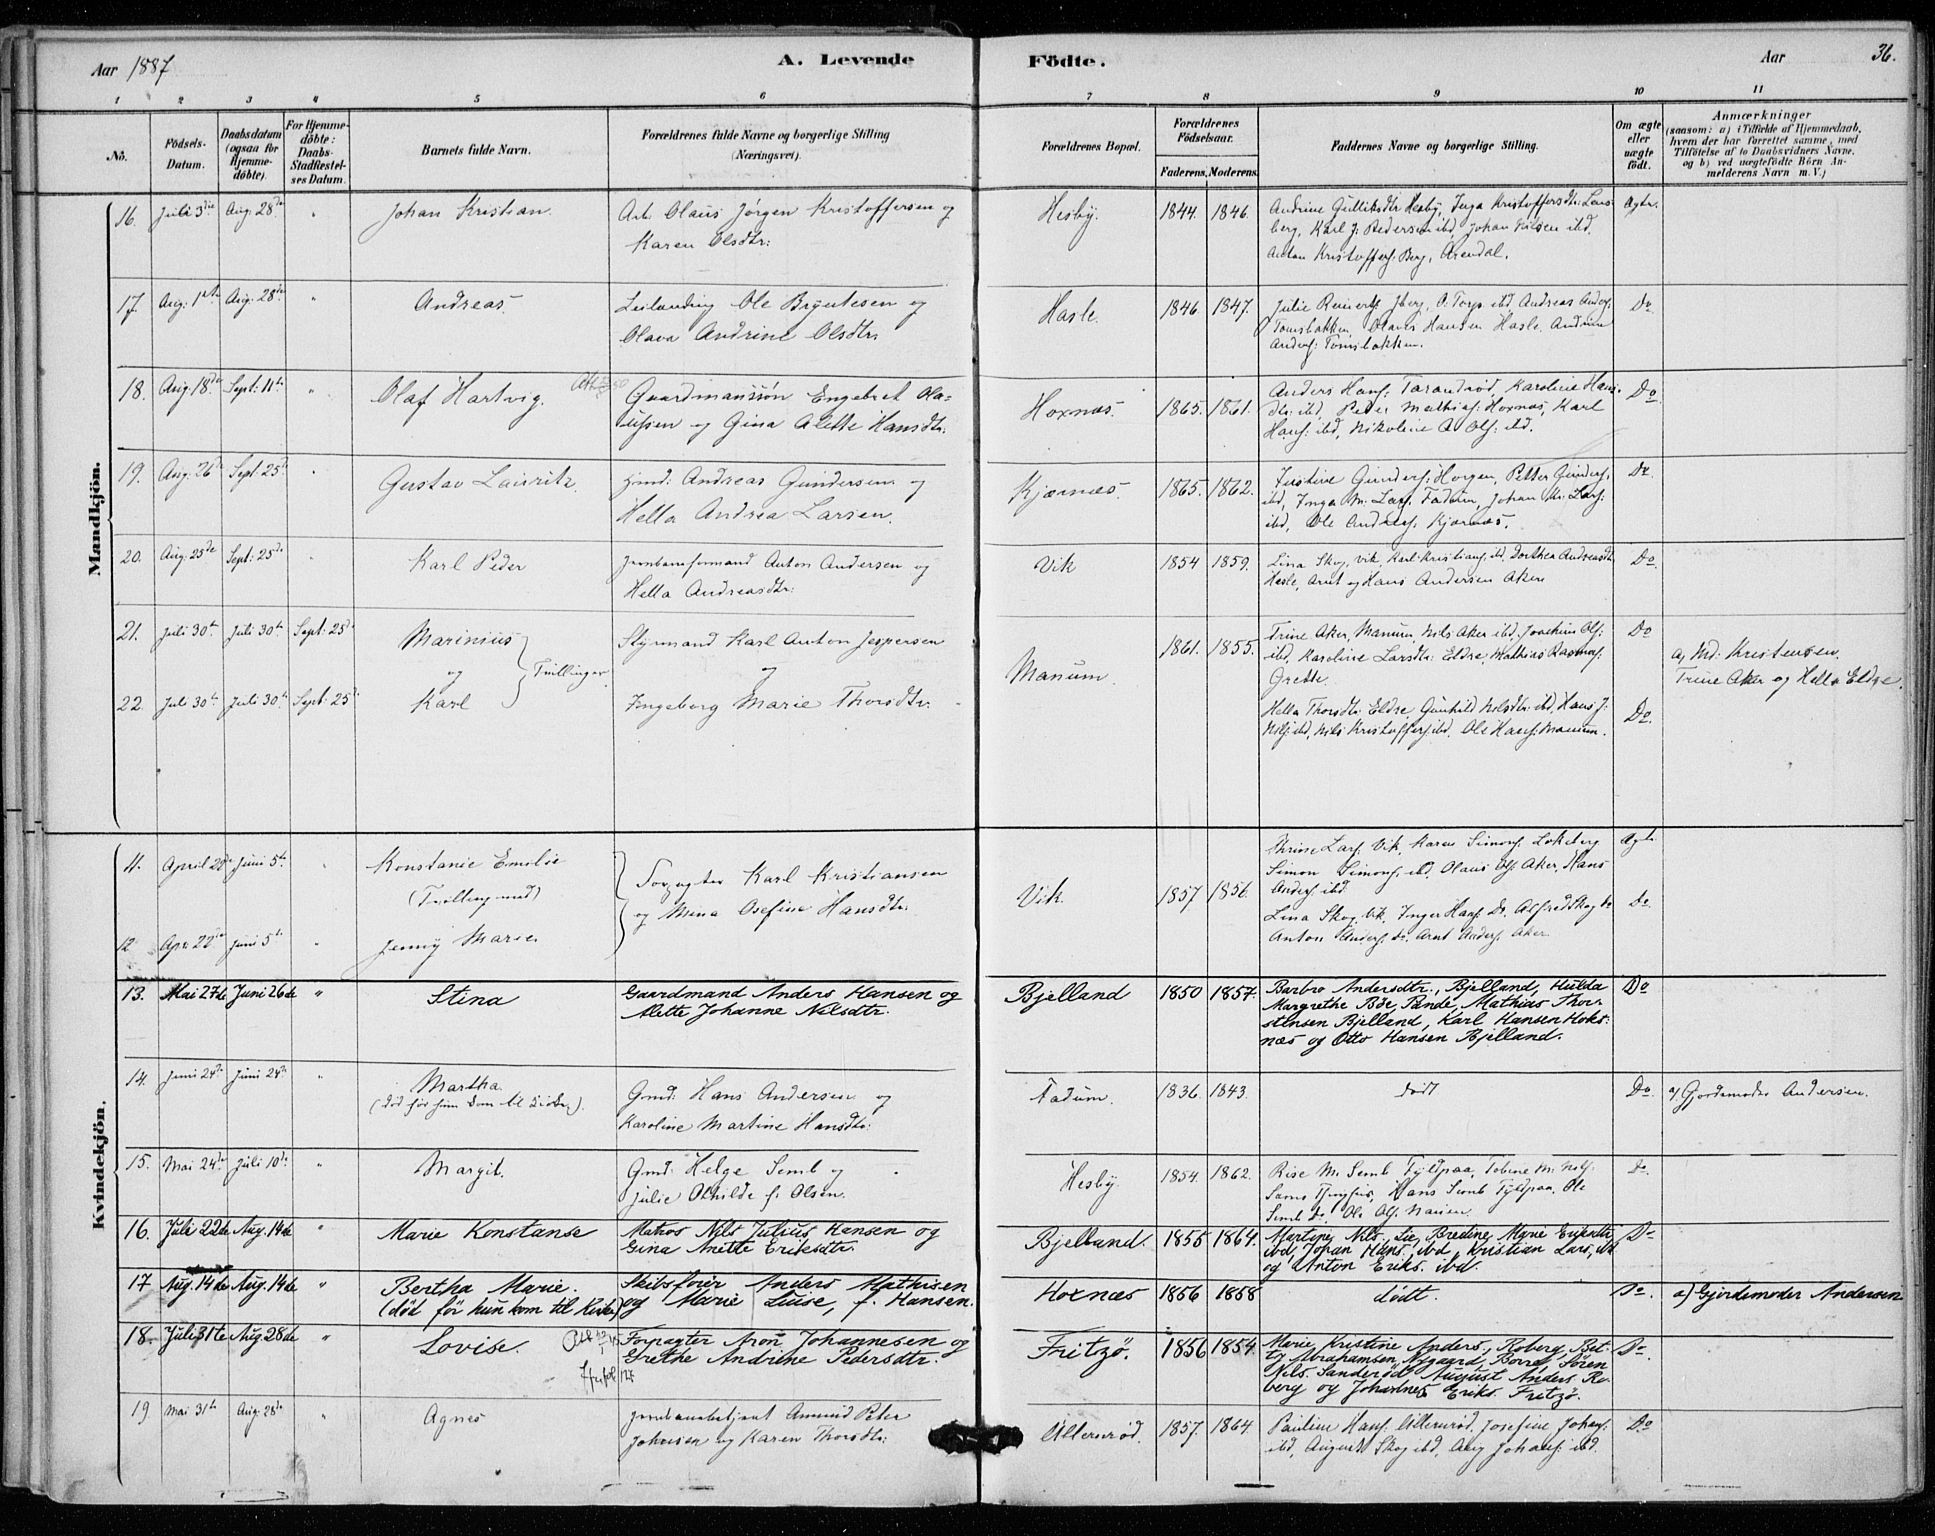 Aar 1887
A. Levende
Födte.
Aar
36.
1 2 3 4 5 6 7 8 9 10 11
No.
Födsels-
Datum.
Daabsdatum
(ogsaa for
Hjemme-
döbte).
For Hjemme-
döbte:
Daabs-
Stadfæstel-
ses Datum.
Barnets fulde Navn.
Forældrenes fulde Navne og borgerlige Stilling
(Næringsvei).
Forældrenes Bopæl.
Forældrenes
Födselsaar.
Faderens. Moderens.
Faddernes Navne og borgerlige Stilling.
Om ægte
eller
uægte
födt.
Anmærkninger
(saasom: a) i Tilfælde af Hjemmedaab,
hvem der har forrettet samme, med
Tilföielse af to Daabsvidners Navne,
og b) ved uægtefödte Börn An-
melderens Navn m. V.)
Mandkjön.
16. Juli 3die Aug. 28de " Johan Kristian. Arb. Olaus Jørgen Kristoffersen og
Karen Olsdtr:
Hesby. 1844. 1846. Andrine Gulliksdtr Hesby, Inga Kristoffersdtr:
berg, Karl J: Pedersen ibd, Johan Nilsen ibd.
Anton Kristoffers: Berg, Arendal.
Ægte.
17. Aug: 1ste Aug: 28de " Andreas. Leilænding Ole Bryntesen og
Olava Andrine Olsdtr.
Hasle. 1846. 1847. Julie O. Torp ibd Andreas Anders:
Tomsbakken, Olaves Hansen Hasle, Andrine
Anders: Tomsbakken.
Do
18. Aug: 18de Sept: 11te " Olaf Hartvig. Gaardmanssøn Engebret Ola-
ussen og Gina Alette Hansdtr:
Hoxnæs. 1865. 1861. Anders Hans: Tarandrød, Karoline Hans-
dtr: ibd, Peder Mathias: Hoxnæs, Karl
Hans: ibd, Nikoline A. Ols: ibd.
Do
19. Aug: 26de Sept: 25de " Gustav Lauritz. Gmd: Andreas Gundersen og
Hella Andrea Larsen.
Kjærnæs. 1865. 1862. Justine Gunders: Horgen, Petter Gunders:
ibd, Inga M. Lars: Fadum, Johan M. Lars:
ibd, Ole Andreas: Kjærnæs.
Do.
20. Aug: 25de Sept: 25de " Karl Peder Jernbaneformand Anton Andersen og
Hella Andreasdtr:
Vik 1854 1859. Lina Skog, Vik, Karl Kristians: ibd. Dorthea Andreasdtr
Hasle, Arnt og Hans Andersen Aker.
Do.
21. Juli 30te Juli 30te Sept: 25de Marinius
og Tvillinger
22. Juli 30te Juli 30te Sept: 25de Karl
Styrmand Karl Anton Jespersen
og
Ingeborg Marie Thorsdtr.
Manum. 1861. 1855. Trine Aker, Manum, Nils Aker ibd, Joachim Ols:
ibd, Karoline Larsdtr: Eldre, Mathias Rasmus:
Grette.
Do
a, Md: Kristensen.
Trine Aker og Hella Eldre.
Hella Thorsdtr: Eldre, Gunhild Nilsdtr: ibd, Hans J:
Nils: ibd, Nils Kristoffers: ibd. Ole Hans: Manum.
Do.
Kvindekjön.
11. April 22de Juni 5te " Konstanie Emilie
(Tvilling med)
12 Apr. 22de Juni 5te " Jenny Marie
Forpagter Karl Kristiansen
og Mina Osefine Hansdtr:
Vik. 1857 1856. Thrine Lars: Vik, Karen Simons: Lokeberg
Simon Simons: ibd, Olaus Ols: Aker, Hans
Anders: ibd.
Ægte
Lina Skog, Vik, Inger Hans: Do. Alfred Skog do
Anton Anders: do. Arnt Anders: Aker.
Do.
13. Mai 27de Juni 26de " Stina Gaardmand Anders Hansen og
Alette Johanne Nilsdtr.
Bjelland 1850 1857. Barbro Andersdtr., Bjelland, Hulda
Margrethe Böe, Pande, Mathias Thor-
stensen Bjelland, Karl Hansen Hoks-
næs og Otto Hansen Bjelland.
Do
14. Juni 24de Juni 24de " Martha
(død før hun kom til Kirken).
Gmd: Hans Andersen og
Karoline Martine Hansdtr:
Fadum. 1836. 1843. dødt Do. a, Gjordemoder Andersen.
15. Mai 24de Juli 10de " Margit. Gmd: Helge Semb og
Julie Othilde f. Olsen.
Hesby. 1854. 1862. Rise M. Semb Fyldpaa, Tobine M. Nils:
Hans Semb Fyldpaa, Ole
Semb do, Ole Ols:
Do.
16. Juli 22de Aug. 14de " Marie Konstanse Matros Nils Julius Hansen og
Gina Anette Eriksdtr.
Bjelland. 1855 1864. Martine Nils., Lie, Bredine Marie Eriksdtr
ibd, Johan Hans. ibd, Kristian Lars., ibd
og Anton Eriks. ibd.
Do
17 Aug. 14de Aug. 14de " Bertha Marie.
(död för hun kom til Kirke)
Skibsförer Anders Mathisen
og Marie Luise, f. Hansen.
Hoxnæs 1856 1858 dödt. Do. a) Gjordemoder Andersen
18. Juli 31te Aug. 28de " Lovise. Forpagter Aron Johannesen og
Grethe Andrine Pedersdtr.
Fritzö. 1856 1854. Marie Kristine Anders., Roberg, Bet-
ty Abrahamsen, Nygaard, Borre, Sören
Nils. Sanderöd, August Anders. Ro-
berg og Johannes Eriks. Fritzö.
Do.
19 Mai 31te Aug: 28de " Agnes Jernbanebetjent Amund Peter
Johnsen og Karen Thorsdtr:
Ullerurød. 1857. 1864. Pauline Hans: Ullerurød, Josefine Johans:
ibd, August Skog ibd, Aug Johans: ibd.
Do